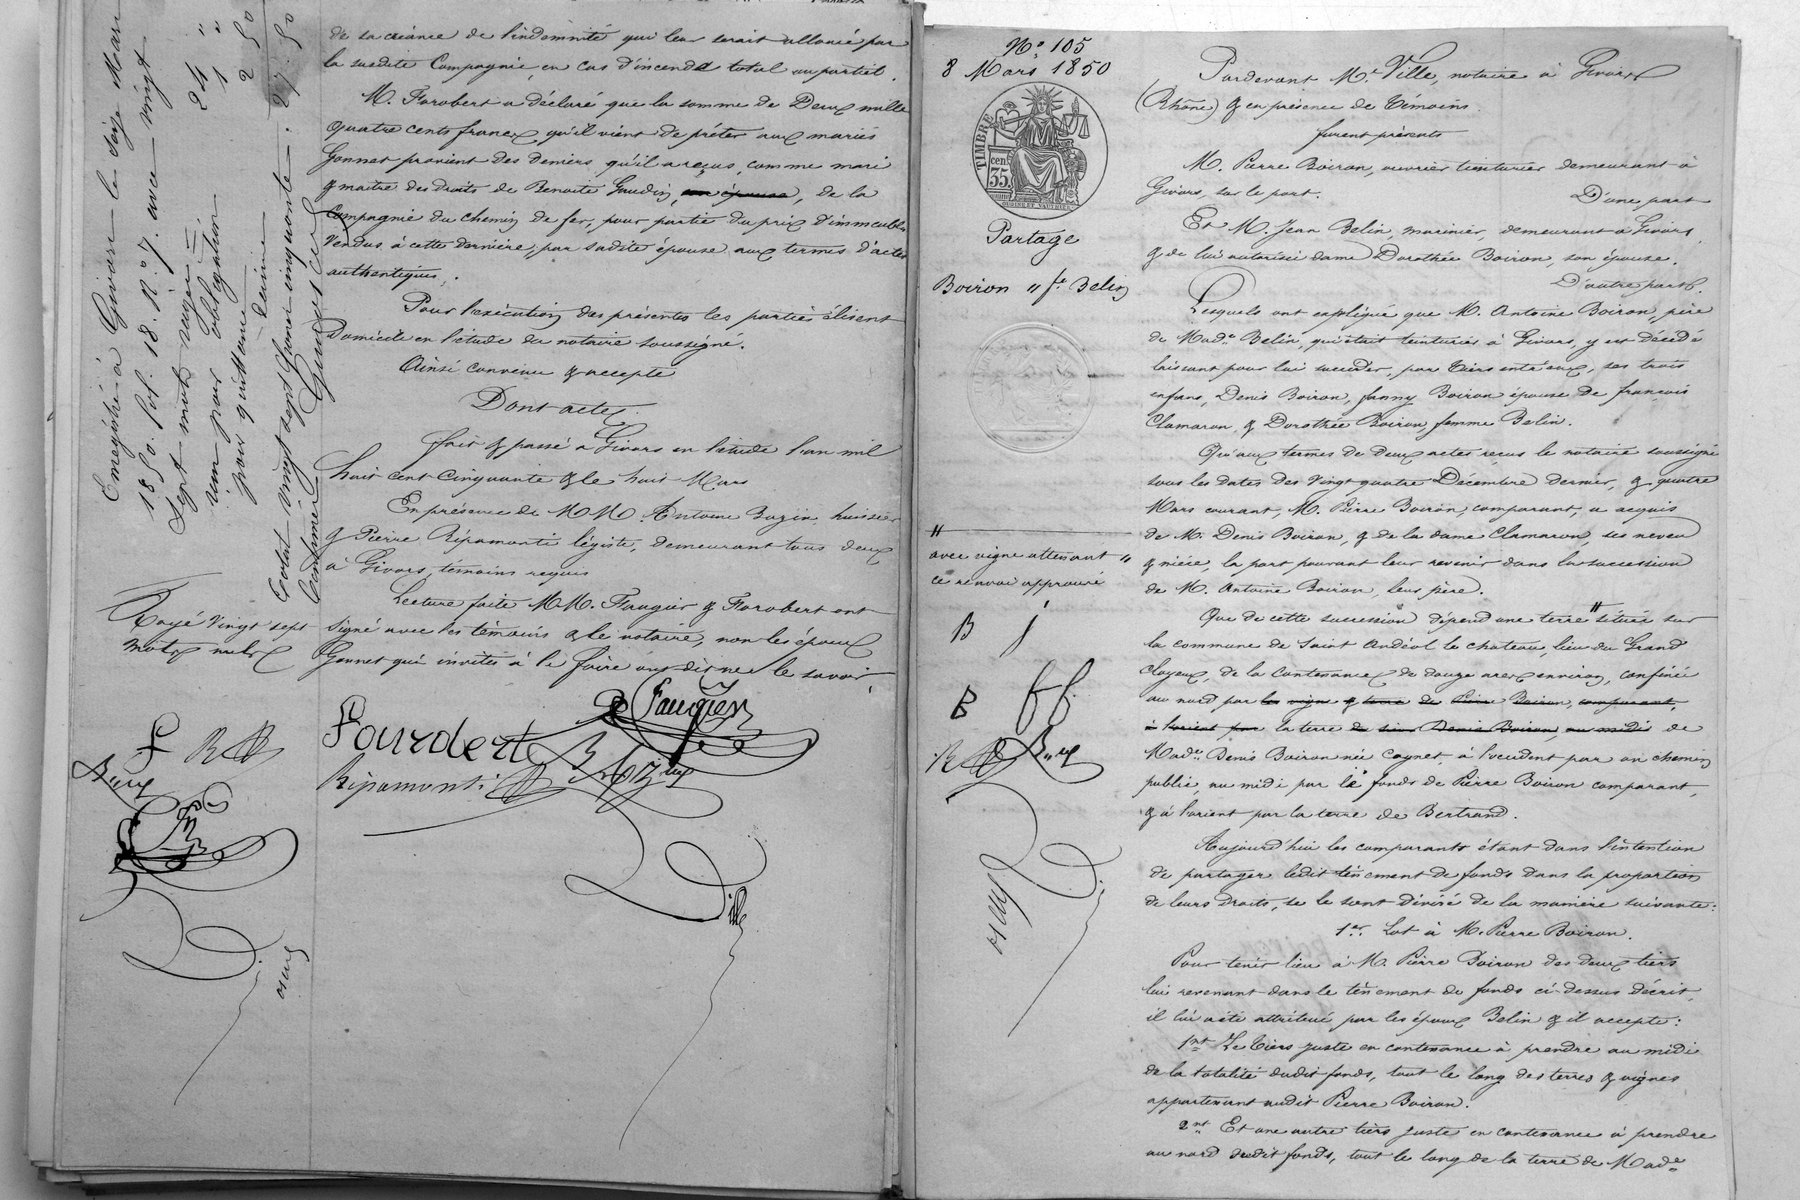 de sa créance de l'indemnité qui leur serait allouée par
la susdite Compagnie, en cas d'incendie total ou partiel.
M. Farobert a déclaré que la somme de Deux mille
quatre cents francs, qu'il vient de prêter aux mariés
Gonnet provient des deniers qu'il a reçus, comme mari
& maître des droits de Benoite Gaudin, son épouse, de la
Compagnie du chemin de fer, pour partie du prix d'immeubles
vendus à cette dernière, par sadite épouse aux termes d'actes
authentiques.
Pour l'exécution des présentes les parties élisent
Domicile en l'étude du notaire soussigné.
Ainsi convenu & accepté
Dont acte.
fait & passé à Givors en l'étude l'an mil
huit cent cinquante & le huit Mars
En présence de MM. Antoine Bazin, huissier
& Pierre Ripamonti légiste, demeurant tous deux
à Givors, témoins requis
Lecture faite MM. Faugier & Farobert ont
signé avec les témoins & le notaire, non les époux
Gonnet qui invités à le faire ont dit ne le savoir.
Rayé vingt sept
mots nuls
Enregistré à Givors le seize Mars
1850. fol. 18. R.° 7. avec vingt
sept mots rayés
un pour obligation 24 "
pour quittance 1 "
Décime 2 50
27. 50
Total vingt sept francs cinquante
Centimes
Faugier
Ripamonti
N.° 105
8 Mars 1850
TIMBRE
cen.
35
Partage
Boiron " f.e Belin
"
avec vigne attenant "
ce renvoi approuvé
Pardevant M.e Ville, notaire à Givors
(Rhône) & en présence de témoins.
furent présents
M. Pierre Boiron, ouvrier teinturier demeurant à
Givors, sur le port.
D'une part
Et M. Jean Belin, marinier, demeurant à Givors,
& de lui autorisée dame Dorothée Boiron, son épouse.
D'autre part.
Lesquels ont expliqué que M. Antoine Boiron, père
de Mad.e Belin, qui était teinturier à Givors, y est décédé
laissant pour lui succéder, par tiers entr'eux, ses trois
enfans, Denis Boiron, fanny Boiron épouse de françois
Clamaron, & Dorothée Boiron femme Belin.
Qu'aux termes de deux actes reçus le notaire soussigné
sous les dates des vingt quatre Décembre dernier, & quatre
Mars courant, M. Pierre Boiron comparant, a acquis
de M. Denis Boiron, & de la dame Clamaron, ses neveu
& nièce, la part pouvant leur revenir dans la succession
de M. Antoine Boiron, leur père.
Que de cette succession dépend une terre " située sur
la commune de Saint Andéol le chateau, lieu du Grand
Cloyeux, de la contenance de douze ares environ, confinée
au nord par les vigne & terre de Pierre Boiron, comparant,
à l'orient par la terre de sieur Denis Boiron au midi de
Mad.e Denis Boiron née Coynet, à l'occident par un chemin
public, au midi par le fonds de Pierre Boiron comparant,
& à l'orient par la terre de Bertrand.
Aujourd'hui les comparants étant dans l'intention
de partager ledit tènement de fonds dans la proportion
de leurs droits, se le sont divisé de la manière suivante:
1.er Lot à M. Pierre Boiron.
Pour tenir lieu à M. Pierre Boiron des deux tiers
lui revenant dans le tènement de fonds ci-dessus décrit,
il lui a été attribué par les époux Belin & il accepte:
1.nt Le tiers juste en contenance à prendre au midi
de la totalité dudit fonds, tout le long des terres & vignes
appartenant audit Pierre Boiron.
2.nt Et une autre tiers juste en contenance à prendre
au nord dudit fonds, tout le long de la terre de Mad.e